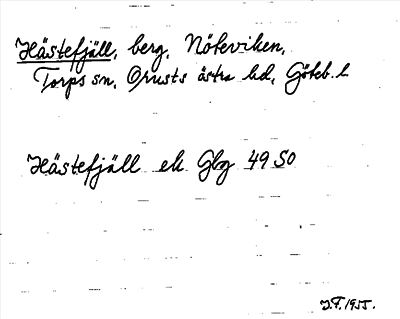 Hästefjäll, berg, Nöteviken,
Torps sn, Orusts östra hd, Göteb. l
Hästefjäll ek Gbg 49 SO
J.F. 1955.